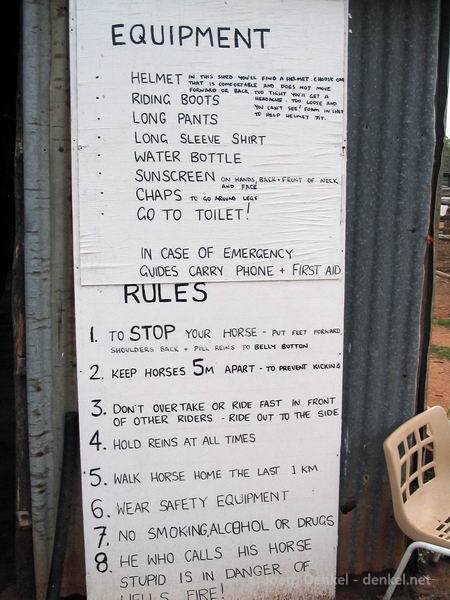 EQUIPMENT
HELMET IN THIS SHED YOU'LL FIND A HELMET. CHOOSE ONE
THAT IS COMFORTABLE AND DOES NOT MOVE
FORWARD OR BACK. TOO TIGHT YOU'LL GET A
HEADACHE. TOO LOOSE AND
YOU CAN'T SEE! FOAM IN SHED
TO HELP HELMET FIT.
RIDING BOOTS
LONG PANTS
LONG SLEEVE SHIRT
WATER BOTTLE
SUNSCREEN ON HANDS, BACK + FRONT OF NECK
AND FACE
CHAPS TO GO AROUND LEGS
GO TO TOILET!
IN CASE OF EMERGENCY
GUIDES CARRY PHONE + FIRST AID
RULES
1. TO STOP YOUR HORSE - PUT FEET FORWARD,
SHOULDERS BACK + PULL REINS TO BELLY BUTTON
2. KEEP HORSES 5M APART - TO PREVENT KICKING
3. DON'T OVERTAKE OR RIDE FAST IN FRONT
OF OTHER RIDERS - RIDE OUT TO THE SIDE
4. HOLD REINS AT ALL TIMES
5. WALK HORSE HOME THE LAST 1 KM
6. WEAR SAFETY EQUIPMENT
7. NO SMOKING, ALCOHOL OR DRUGS
8. HE WHO CALLS HIS HORSE
STUPID IS IN DANGER OF
HELLS FIRE!
Denkel - denkel.net